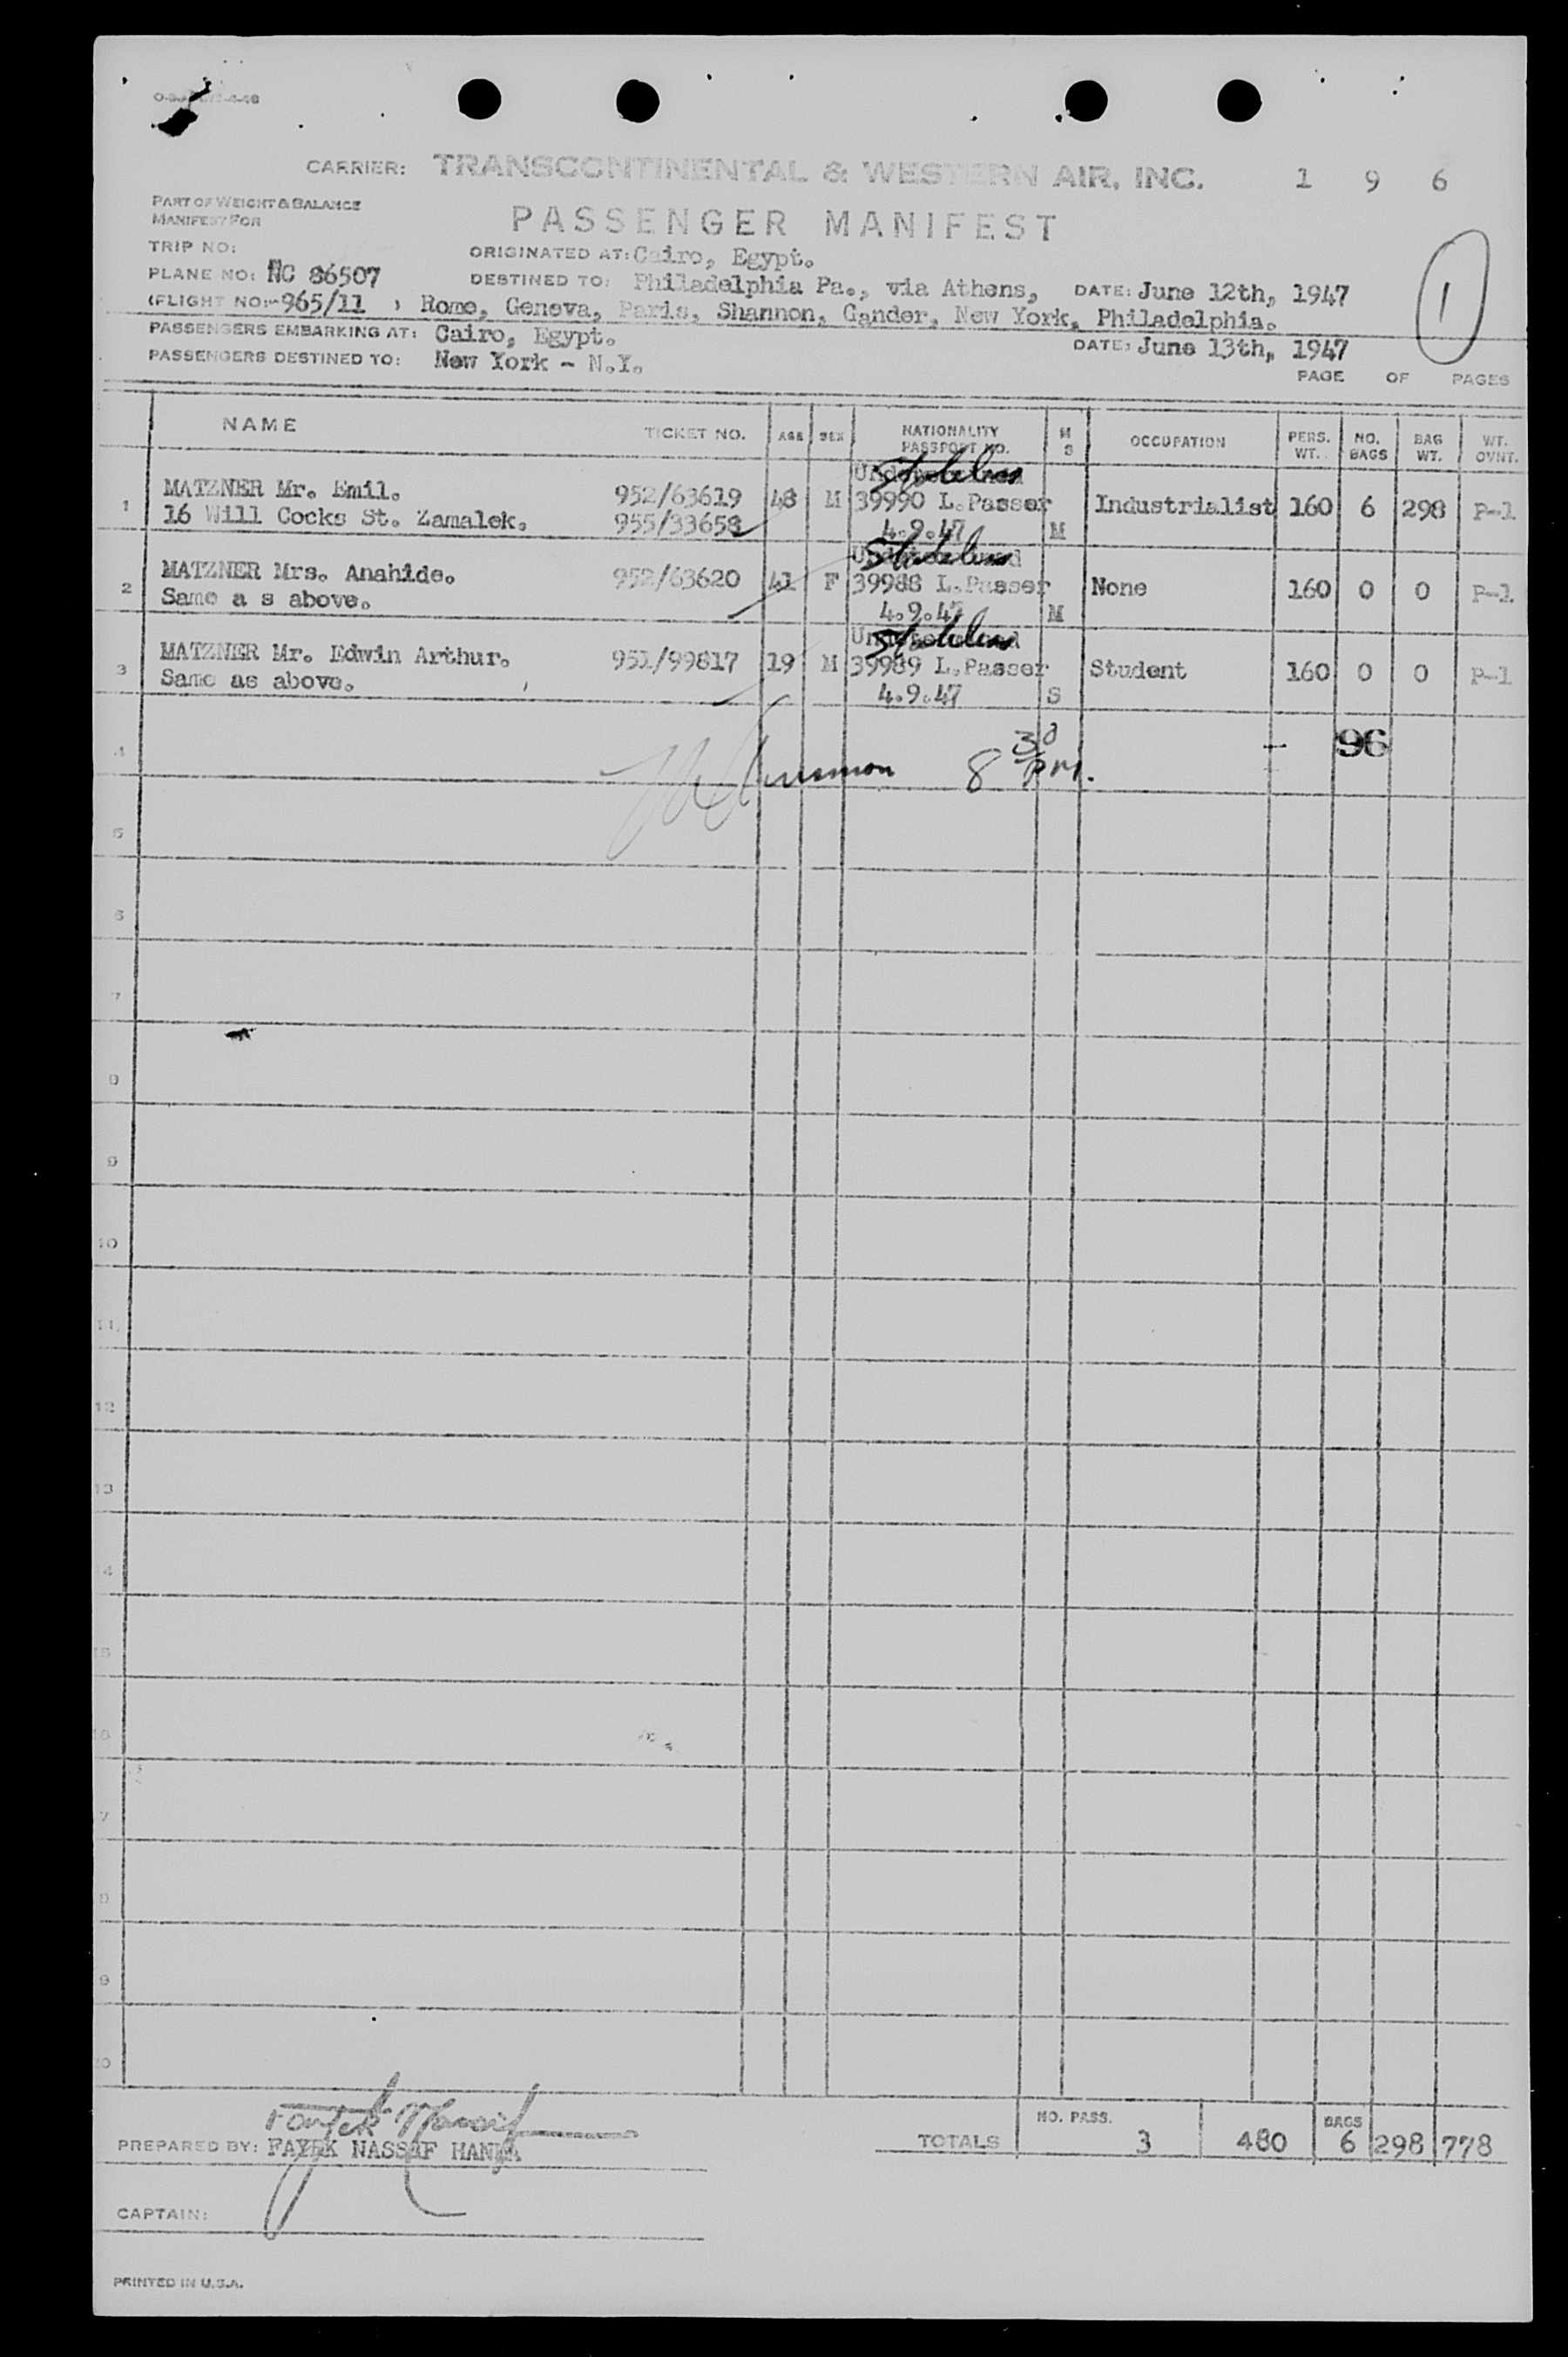 CARRIER: TRANSCONTINENTAL & WESTERN AIR, INC. 1 9 6
PART OF WEIGHT & BALANCE
MANIFEST FOR
PASSENGER MANIFEST
TRIP NO:
ORIGINATED AT: Cairo, Egypt.
PLANE NO: NC 86507
DESTINED TO: Philadelphia Pa., via Athens, DATE: June 12th, 1947
(FLIGHT NO:-965/11 ) Rome, Geneva, Paris, Shannon, Gander, New York, Philadelphia.
1
PASSENGERS EMBARKING AT: Cairo, Egypt.
DATE: June 13th, 1947
PASSENGERS DESTINED TO: New York - N.Y.
PAGE OF PAGES
NAME TICKET NO. AGE SEX NATIONALITY PASSPORT NO. M S OCCUPATION PERS. WT. NO. BAGS BAG WT. WT. OVNT.
Stateless
1 MATZNER Mr. Emil. 952/63619 48 M 39990 L.Passer Industrialist 160 6 298 P-1
16 Will Cocks St. Zamalek. 955/33658 4.9.47 M
Stateless
2 MATZNER Mrs. Anahide. 952/63620 41 F 39988 L.Passer None 160 0 0 P-1
Same a s above. 4.9.47 M
Stateless
3 MATZNER Mr. Edwin Arthur. 951/99817 19 M 39989 L.Passer Student 160 0 0 P-1
Same as above. 4.9.47 S
4 8 30 P.M. 96
5
6
7
8
9
10
11
12
13
14
15
16
17
18
19
20
NO. PASS. BAGS
TOTALS 3 480 6 298 778
PREPARED BY: FAYEK NASSEF HANNA
CAPTAIN:
PRINTED IN U.S.A.